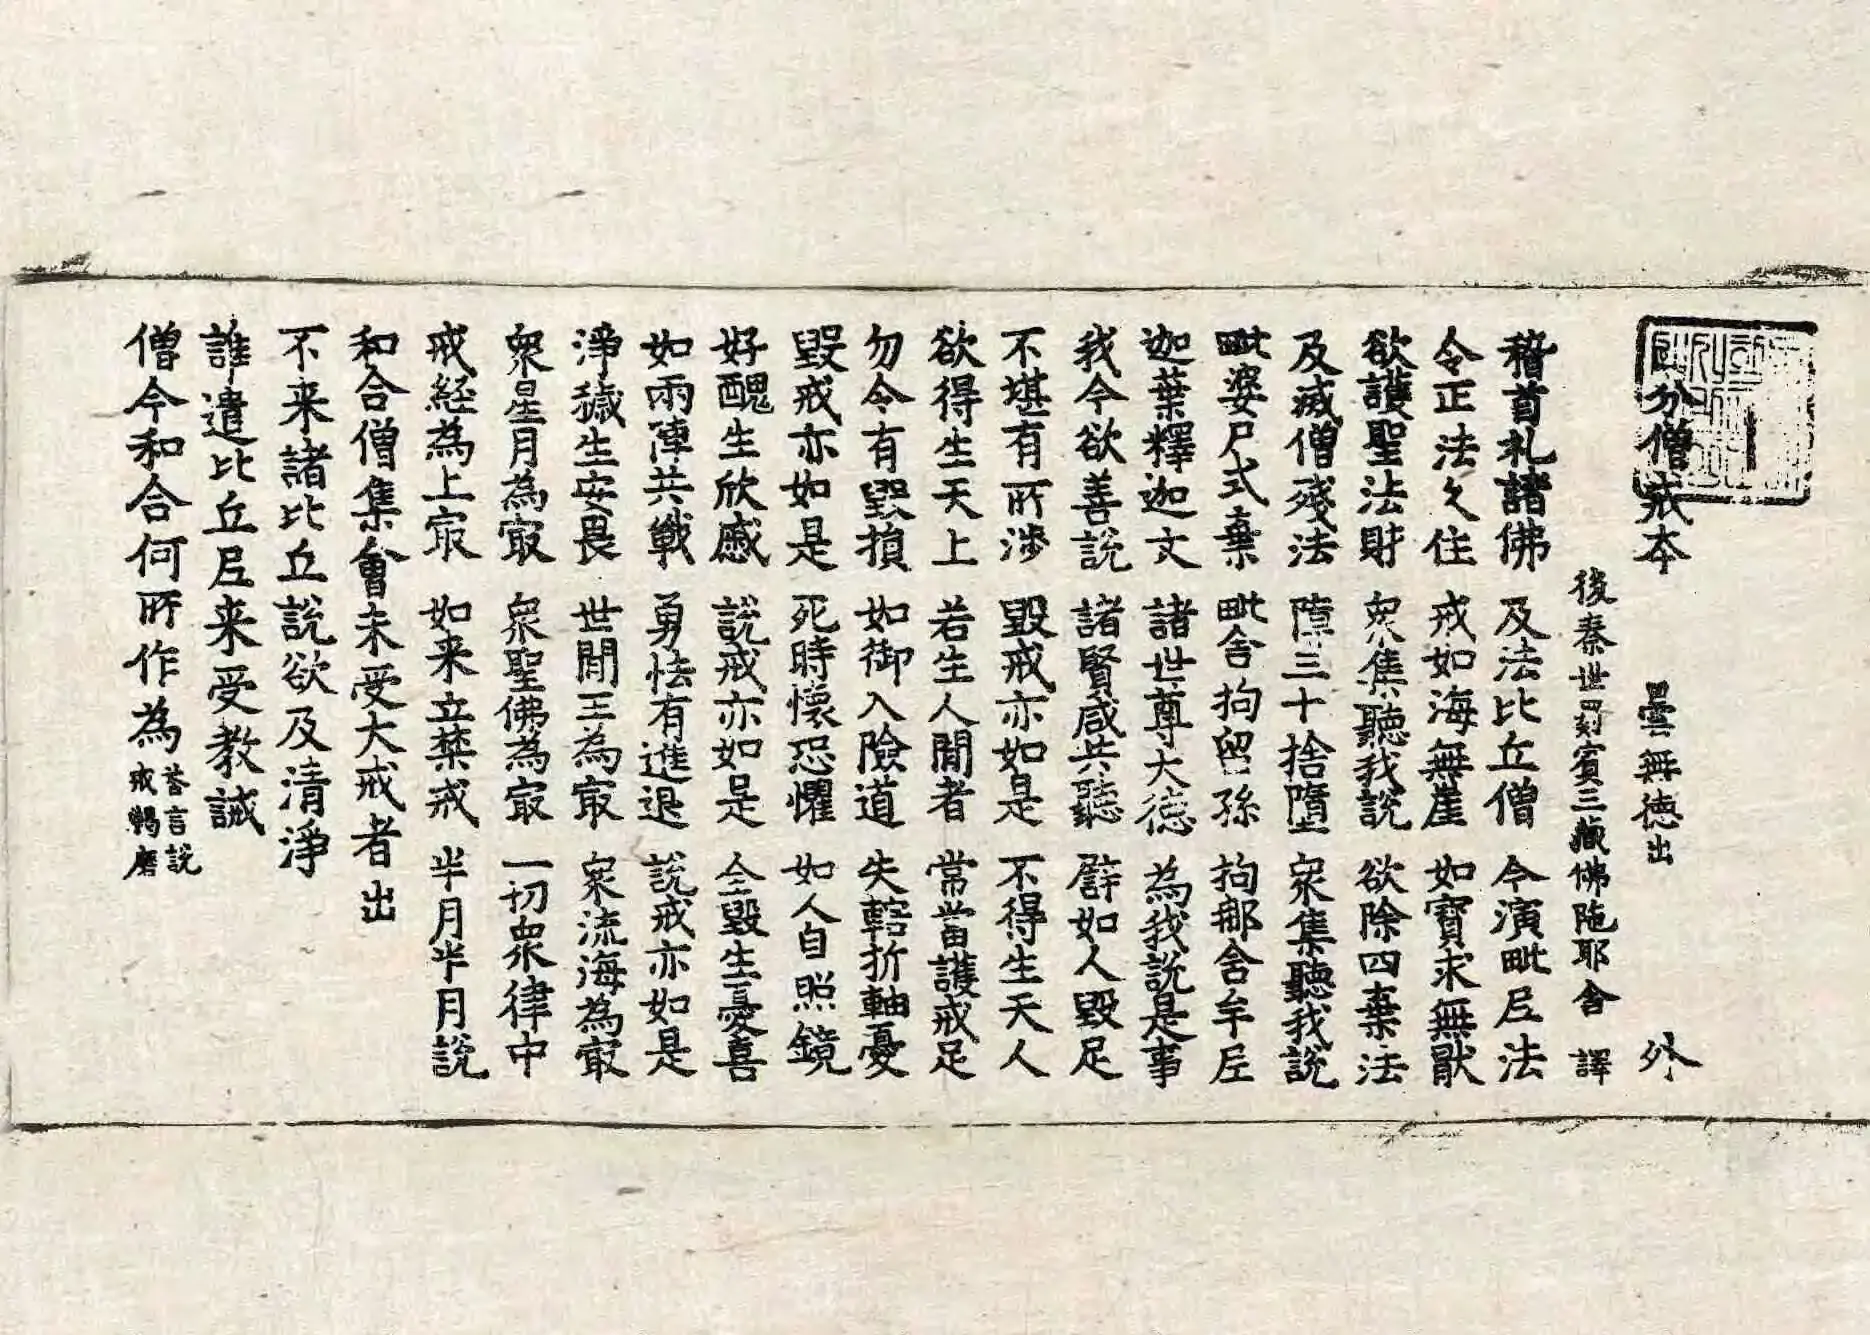 四分僧戒本 曇無德出 外
後秦世罽賓三藏佛陁耶舍 譯
稽首礼諸佛 及法比丘僧 今演毗尼法
令正法久住 戒如海無崖 如寶求無猒
欲護聖法財 眾集聽我說 欲除四棄法
及滅僧殘法 障三十捨墮 眾集聽我說
毗婆尸式棄 毗舍拘留孫 拘那舍牟尼
迦葉釋迦文 諸世尊大德 為我說是事
我今欲善說 諸賢咸共聽 譬如人毀足
不堪有所涉 毀戒亦如是 不得生天人
欲得生天上 若生人間者 常當護戒足
勿令有毀損 如御入險道 失轄折軸憂
毀戒亦如是 死時懷恐懼 如人自照鏡
好醜生欣慼 說戒亦如是 全毀生憂喜
如兩陣共戰 勇怯有進退 說戒亦如是
淨穢生安畏 世間王為冣 眾流海為冣
眾星月為冣 眾聖佛為冣 一切眾律中
戒經為上冣 如来立禁戒 半月半月說
和合僧集會未受大戒者出
不来諸比丘說欲及清淨
誰遣比丘尼来受教誡
僧今和合何所作為 荅言說戒羯磨